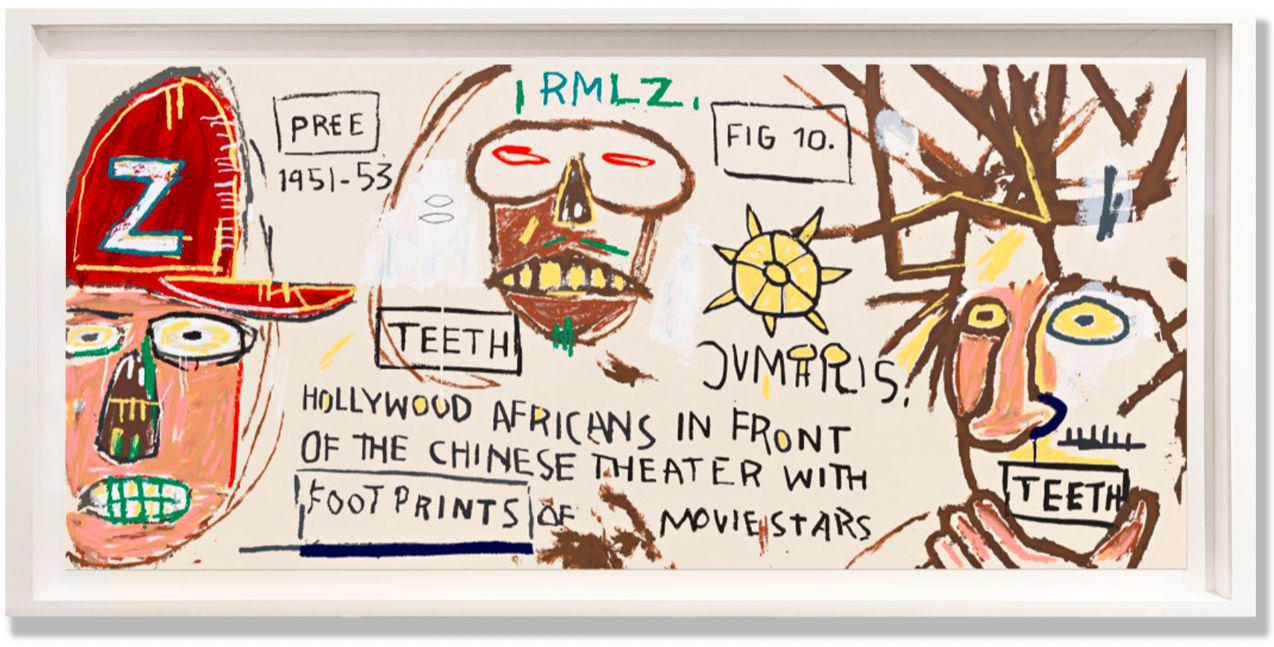 RMLZ.
PREE
1951-53
FIG 10.
Z
TEETH
JUMARIS.
HOLLYWOOD AFRICANS IN FRONT
OF THE CHINESE THEATER WITH
FOOTPRINTS OF MOVIE STARS
TEETH